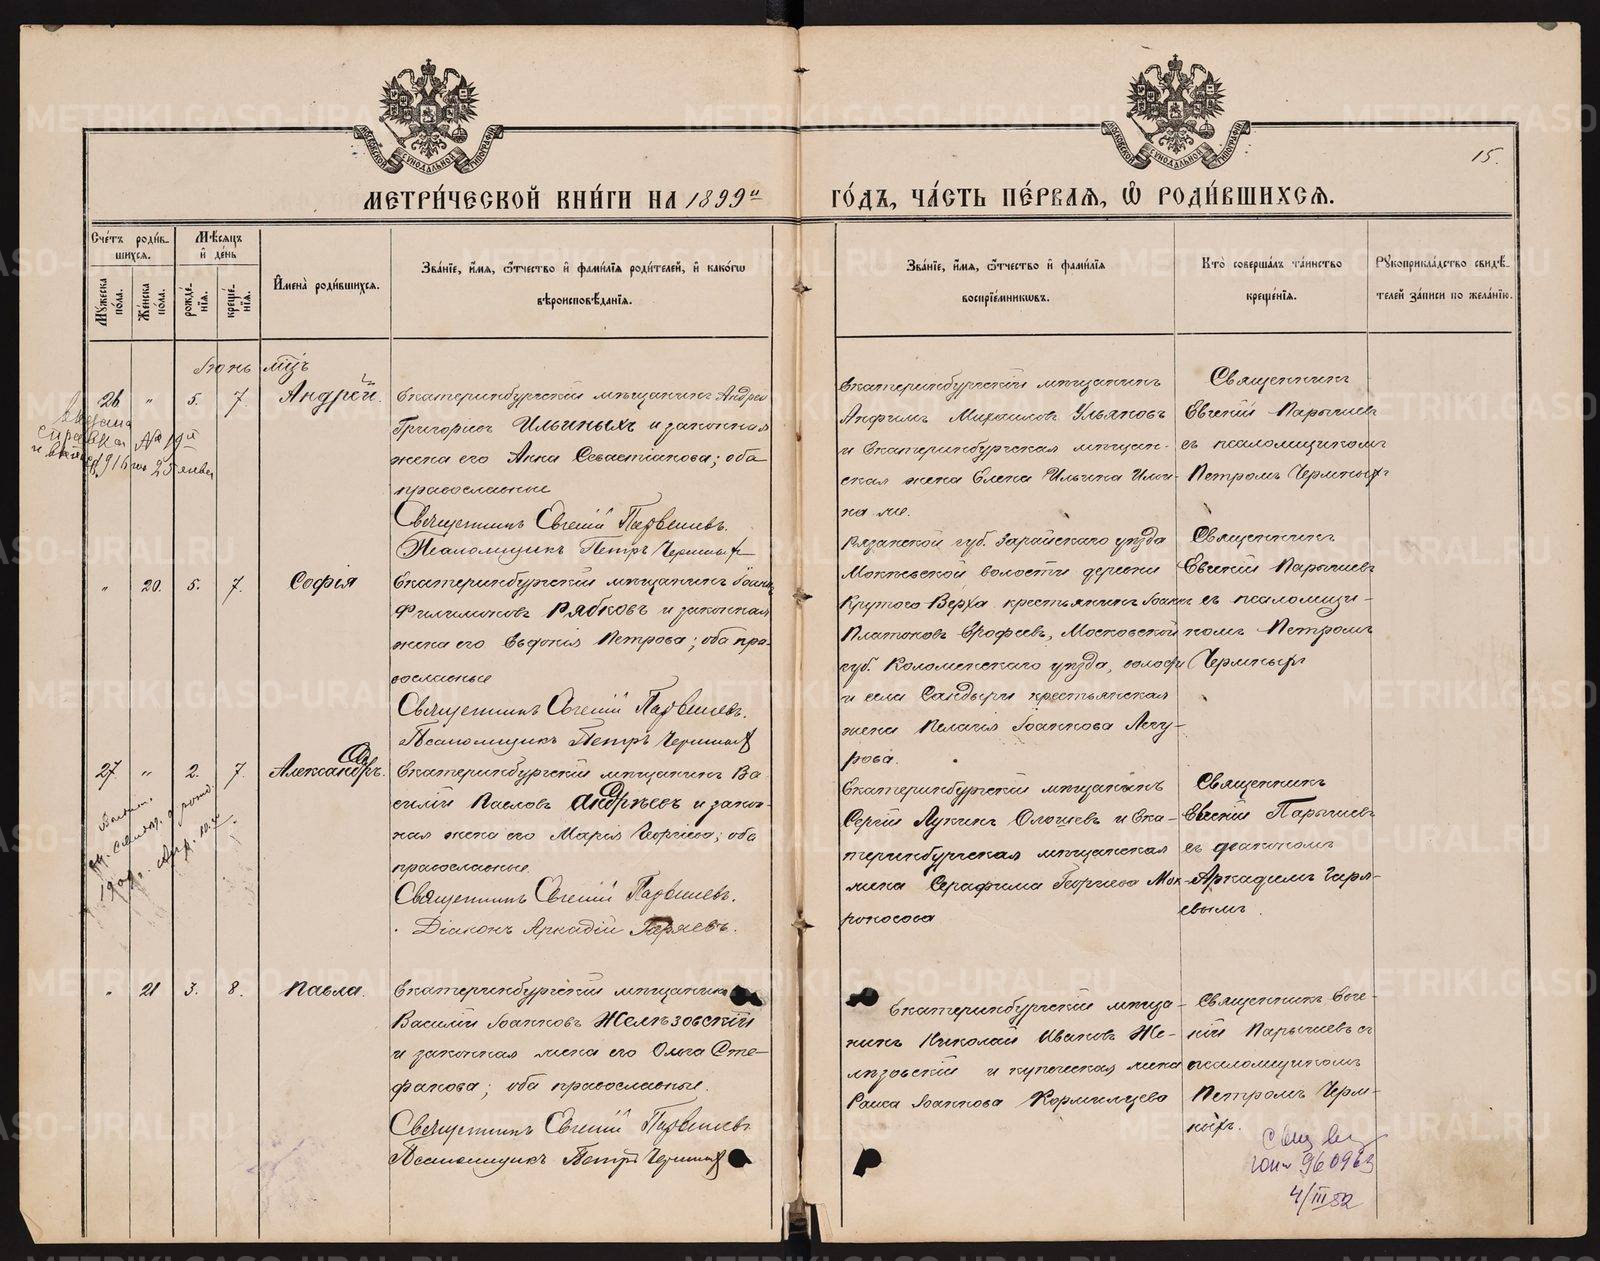 МЕТРИ́ЧЕСКОЙ КНИ́ГИ НА 1899й
ГО́ДЪ, ЧА́СТЬ ПЕ́РВАЯ, Ѿ РОДИ́ВШИХСЯ.
15.
Сче́тъ роди́в-
шихся.
Му́жеска
по́ла.
Же́нска
по́ла.
Мѣ́сяцъ
и҆ де́нь
рожде́-
нїя.
креще́-
нїя.
И҆мена̀ роди́вшихся.
Зва́нїе, и҆́мя, ѻ҆́тчество и҆ фами́лїя роди́телей, и҆ како́гѡ
вѣроисповѣ́данїя.
Зва́нїе, и҆́мя, ѻ҆́тчество и҆ фами́лїя
воспрїе́мникѡвъ.
Кто̀ соверша́лъ та́инство
креще́нїя.
Рꙋкоприкла́дство свидѣ́-
телей за́писи по жела́нїю.
Іюнь мцъ
26 " 5. 7 Андрей.
Екатеринбургскій мѣщанинъ Андрей
Григорьевъ Ильиныхъ и законная
жена его Анна Севастіанова; оба
православные
Священникъ Евгеній Парышевъ.
Псаломщикъ Петръ Чермных
Екатеринбургскій мѣщанинъ
Анфимъ Михаиловъ Ульяновъ
и Екатеринбургская мѣщан-
ская жена Елена Ильина
Священникъ
Евгеній Парышевъ
съ псаломщикомъ
Петромъ Чермныхъ
№ 19й
1916 25 январ
" 20. 5. 7. Софія
Екатеринбургскій мѣщанинъ Іоаннъ
Филимоновъ Рябковъ и законная
жена его Евдокія Петрова; оба пра-
вославные
Священникъ Евгеній Парышевъ.
Псаломщикъ Петръ Чермных
Рязанской губ. Зарайскаго уѣзда
волости деревни
Крутого Верха крестьянинъ Іоаннъ
Платоновъ Ерофеевъ, Московской
губ. Коломенскаго уѣзда,
и села Сандыри крестьянская
жена Пелагія Іоаннова
рова.
Священникъ
Евгеній Парышевъ
съ псаломщи-
комъ Петромъ
Чермныхъ
27 " 2. 7. Александръ.
Екатеринбургскій мѣщанинъ Ва-
силій Павловъ Андреевъ и закон-
ная жена его Марія Георгіева; оба
православные.
Священникъ Евгеній Парышевъ.
Діаконъ Аркадій Гаряевъ.
Екатеринбургскій мѣщанинъ
Сергій Лукинъ и Ека-
теринбургская мѣщанская
жена Серафима Георгіева Мок-
роносова
Священникъ
Евгеній Парышевъ
съ діакономъ
Аркадіемъ Гаря-
евымъ.
" 21 3. 8. Павла.
Екатеринбургскій мѣщанинъ
Василій Іоанновъ Желѣзовскій
и законная жена его Ольга Сте-
фанова; оба православные.
Священникъ Евгеній Парышевъ
Псаломщикъ Петръ Чермных
Екатеринбургскій мѣща-
нинъ Николай Ивановъ Же-
лѣзовскій и купеческая жена
Раиса Іоаннова Кормильцева
Священникъ Евге-
ній Парышевъ съ
псаломщикомъ
Петромъ Черм-
ныхъ.
960963
4/III 82